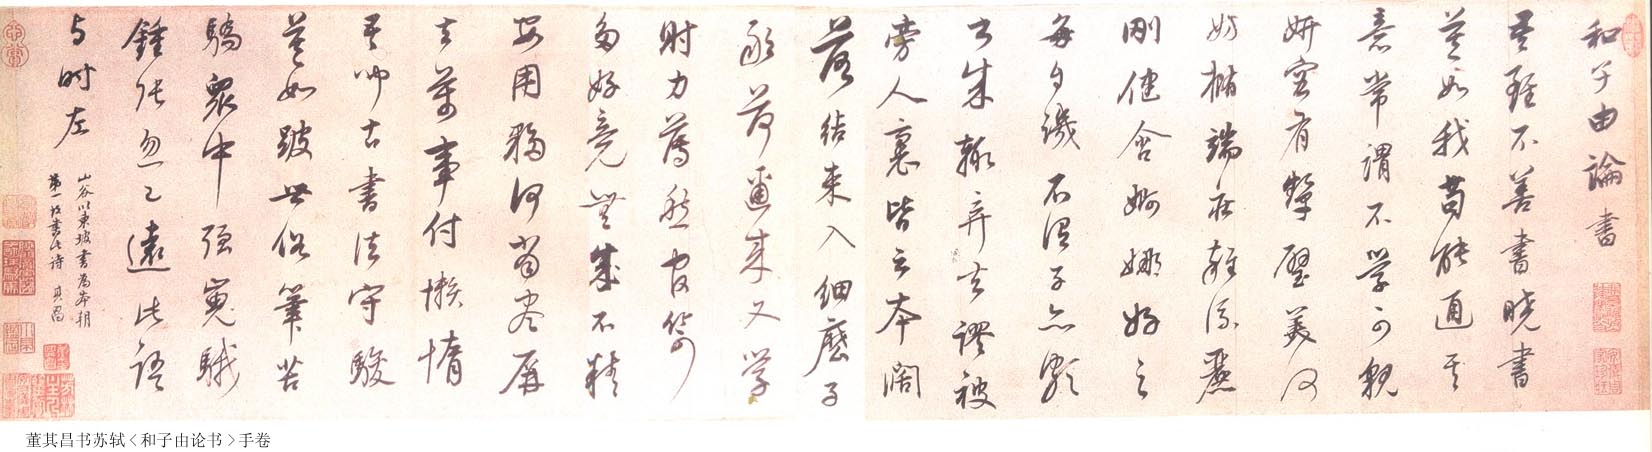 和子由論書
吾雖不善書曉書
莫如我苟能通其
意常謂不學可貌
妍容有顰璧美何
妨橢端莊雜流麗
剛健含婀娜好之
每自譏不謂子亦頗
書成輒弃去謬被
旁人裹皆云本闊
落結束入細麼子
敢荷邇來又學
射力薄愁官笴
多好竟無成不精
安用夥何當盡屏
去萬事付懶惰
吾聞古書法守駿
莫如跛世俗筆苦
驕衆中强嵬騀
鍾張忽已遠此語
與時左
山谷以東坡書為本朝
第一故書此詩 其昌
董其昌书苏轼<和子由论书>手卷